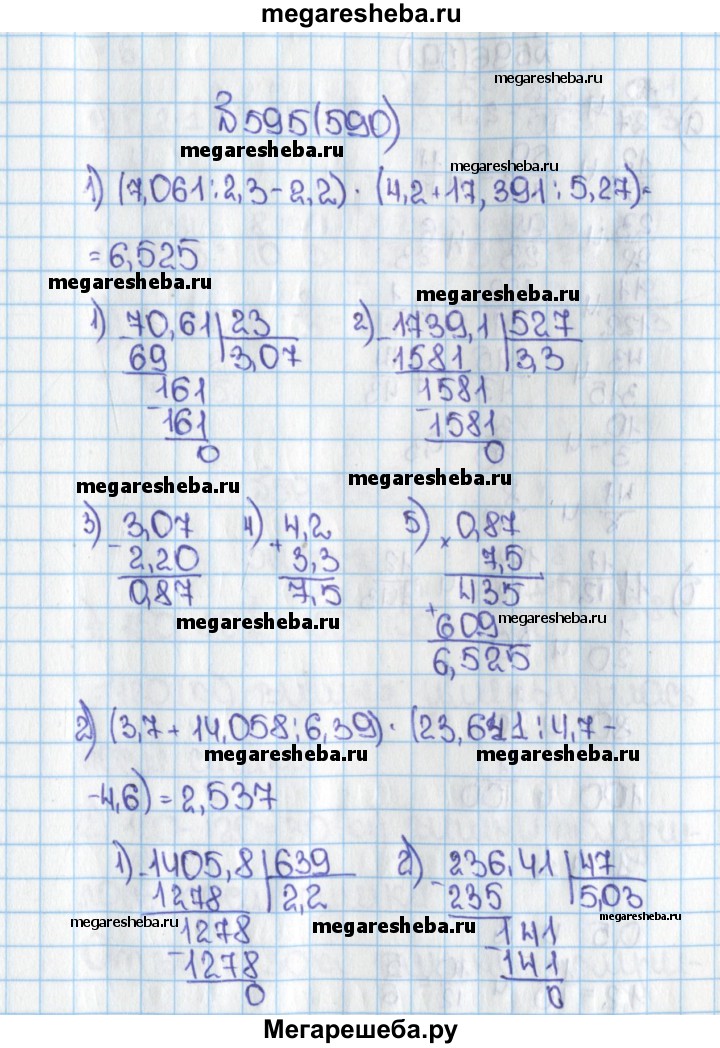 megaresheba.ru
megaresheba.ru
№ 595(590)
megaresheba.ru
megaresheba.ru
1) (7,061 : 2,3 - 2,2) · (4,2 + 17,391 : 5,27) =
= 6,525
megaresheba.ru
megaresheba.ru
1) 70,61 | 23
69 | 3,07
- 161
161
0
2) - 1739,1 | 527
1581 | 3,3
- 1581
1581
0
megaresheba.ru
megaresheba.ru
3) - 3,07
2,20
0,87
4) + 4,2
3,3
7,5
5) × 0,87
7,5
435
+ 609
6,525
megaresheba.ru
megaresheba.ru
2) (3,7 + 14,058 : 6,39) · (23,641 : 4,7 -
megaresheba.ru
megaresheba.ru
- 4,6) = 2,537
1) - 1405,8 | 639
1278 | 2,2
- 1278
1278
0
2) - 236,41 | 47
235 | 5,03
- 141
141
0
megaresheba.ru
megaresheba.ru
megaresheba.ru
Мегарешеба.ру